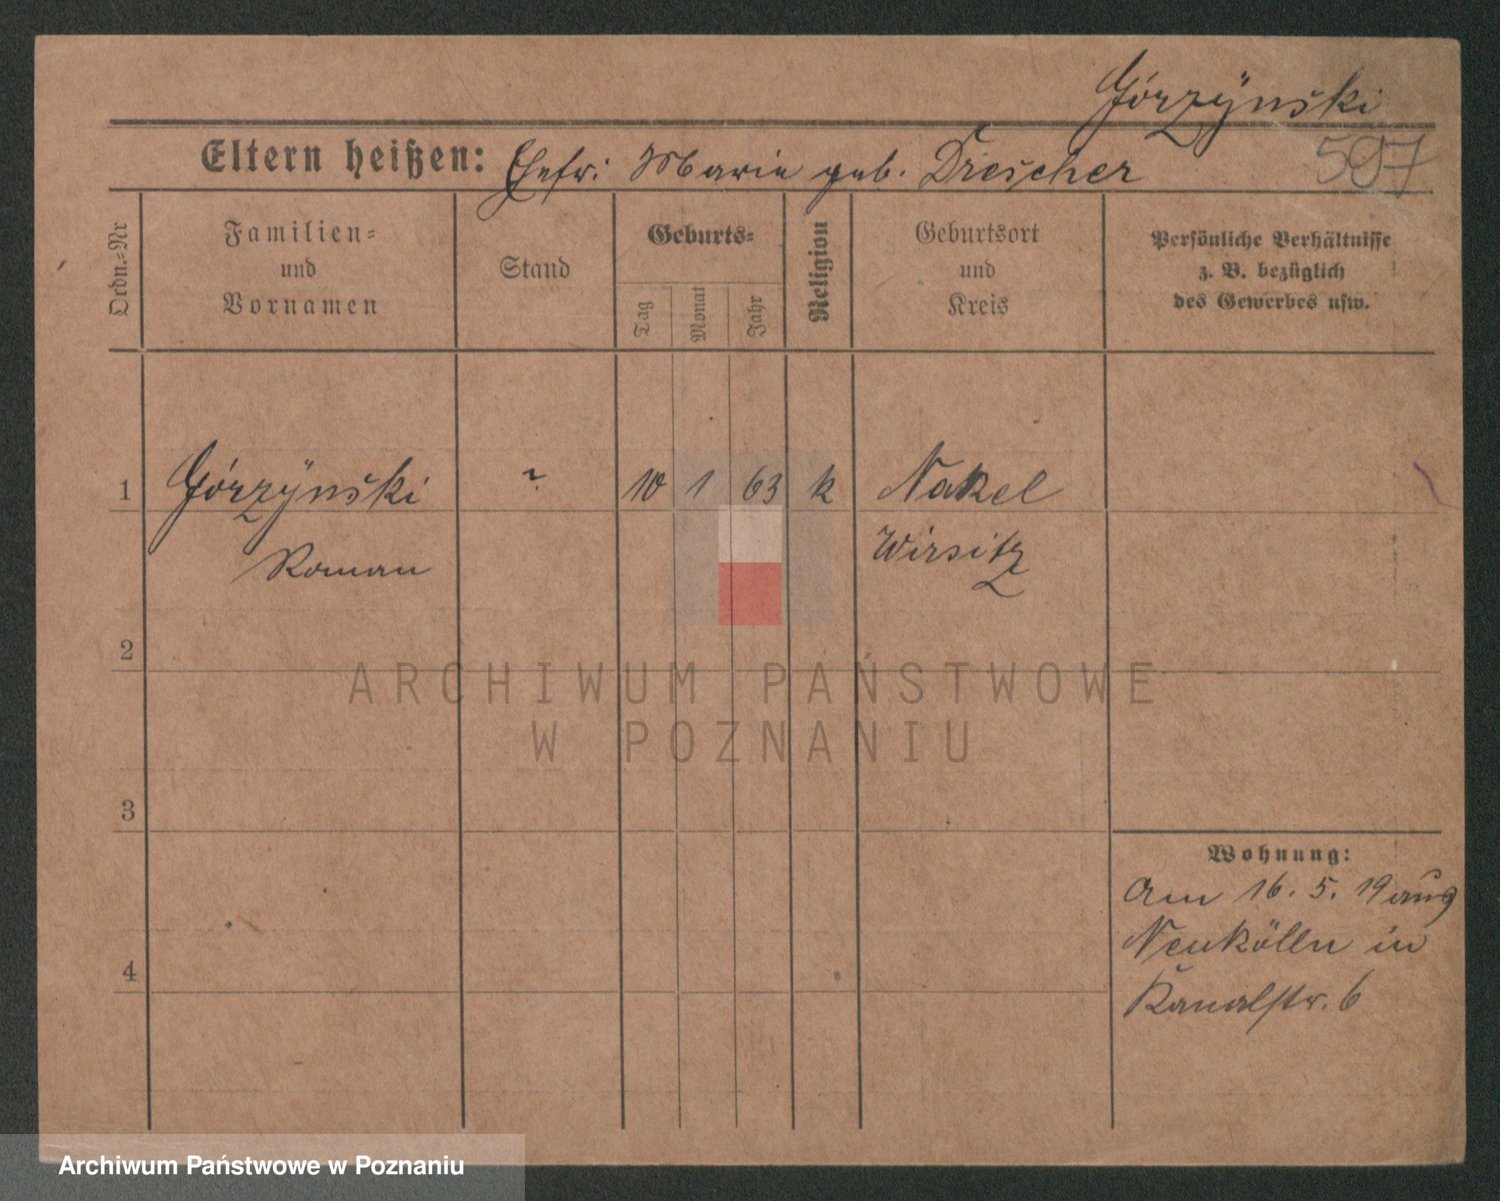 Górzÿnski
597
Eltern heißen: Ehefr: Marie geb. Drescher
Ordn.-Nr
Familien-
und
Vornamen
Stand
Geburts-
Tag
Monat
Jahr
Religion
Geburtsort
und
Kreis
Persönliche Verhältnisse
z. B. bezüglich
des Gewerbes usw.
1 Górzÿnski ? 10 1 63 k Nakel
Roman Wirsitz
2
ARCHIWUM PAŃSTWOWE
W POZNANIU
3
Wohnung:
Am 16. 5. 19 aus
Neukölln in
4
Kanalstr. 6
Archiwum Państwowe w Poznaniu